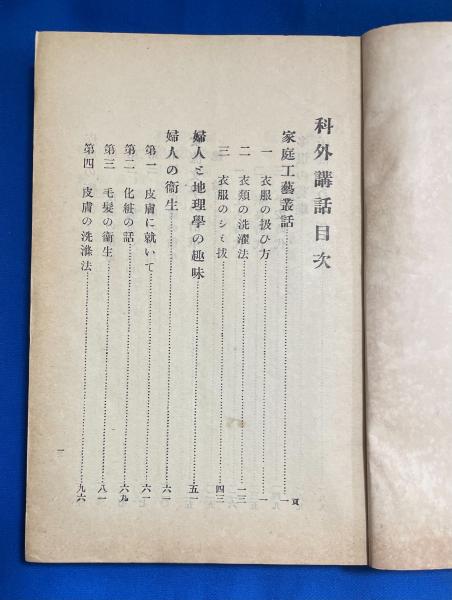 科外講話目次
家庭工藝叢話……一頁
一 衣服の扱ひ方……一
二 衣類の洗濯法……一三
三 衣服のシミ拔……四三
婦人と地理學の趣味……五一
婦人の衞生……六一
第一 皮膚に就いて……六一
第二 化粧の話……六九
第三 毛髮の衞生……八一
第四 皮膚の洗滌法……九六
一